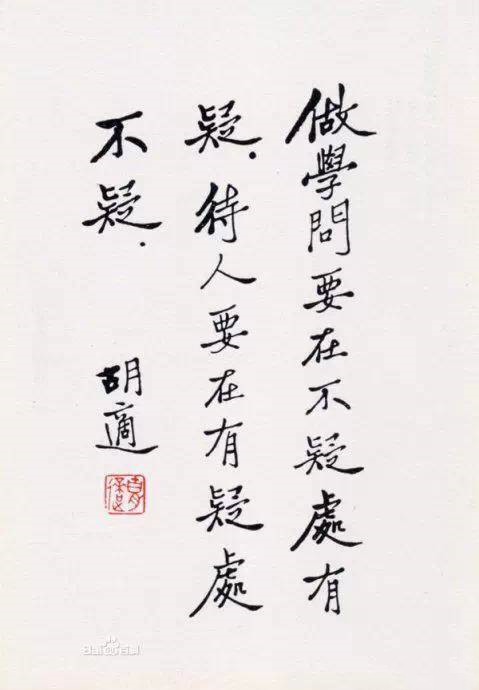 做學問要在不疑處有
疑.待人要在有疑處
不疑.
胡適
Bai百科